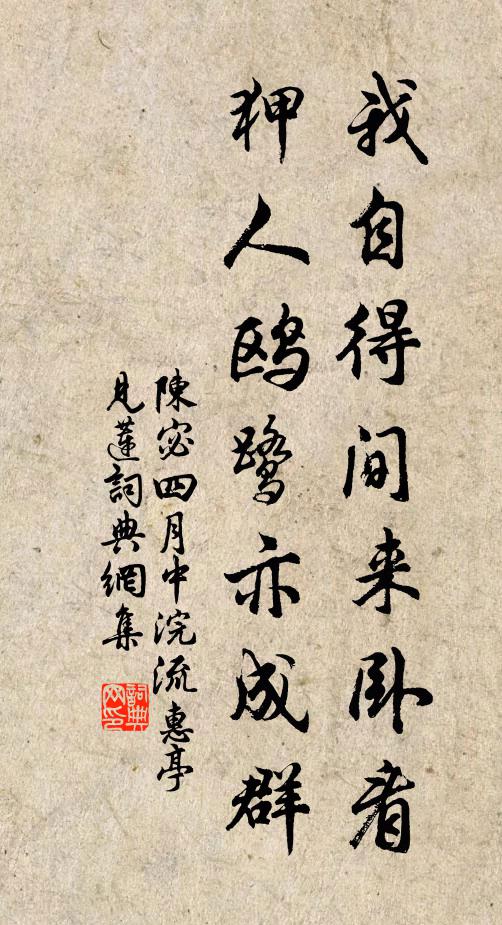 我自得间来卧看
狎人鸥鹭亦成群
陳宓四月中浣流惠亭
見蓮詞典網集
詞典网印